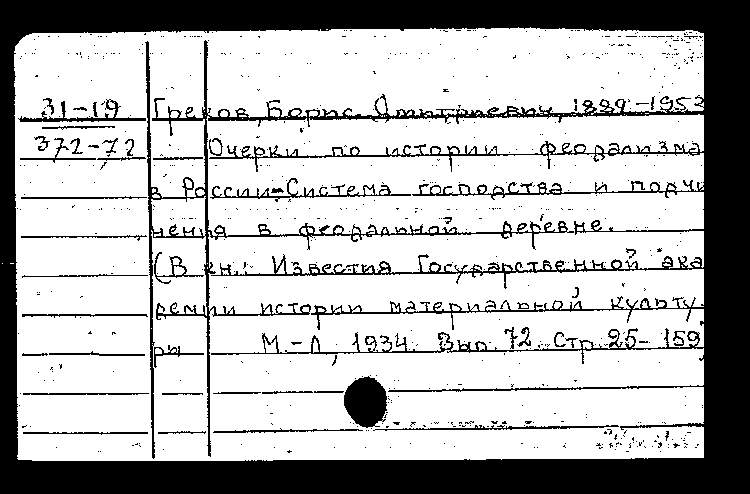 31-19 Греков, Борис Дмитриевич, 1882-1953
372-72 Очерки по истории феодализма
в России. Система господства и подчи
нения в феодальной деревне.
(В кн.: Известия Государственной ака
демии истории материальной культу-
ры М.-Л, 1934. Вып. 72. Стр 25-159